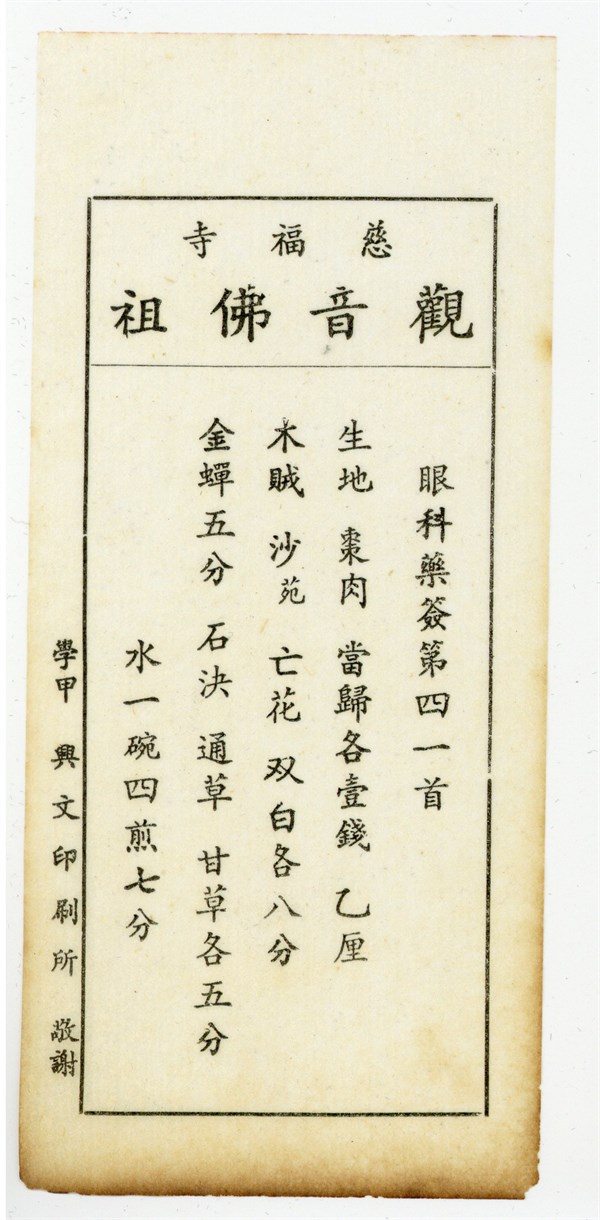 慈福寺
觀音佛祖
眼科藥簽第四一首
生地 棗肉 當歸各壹錢 乙厘
木賊 沙苑 亡花 双白各八分
金蟬五分 石決 通草 甘草各五分
水一碗四煎七分
學甲 興文印刷所 敬謝